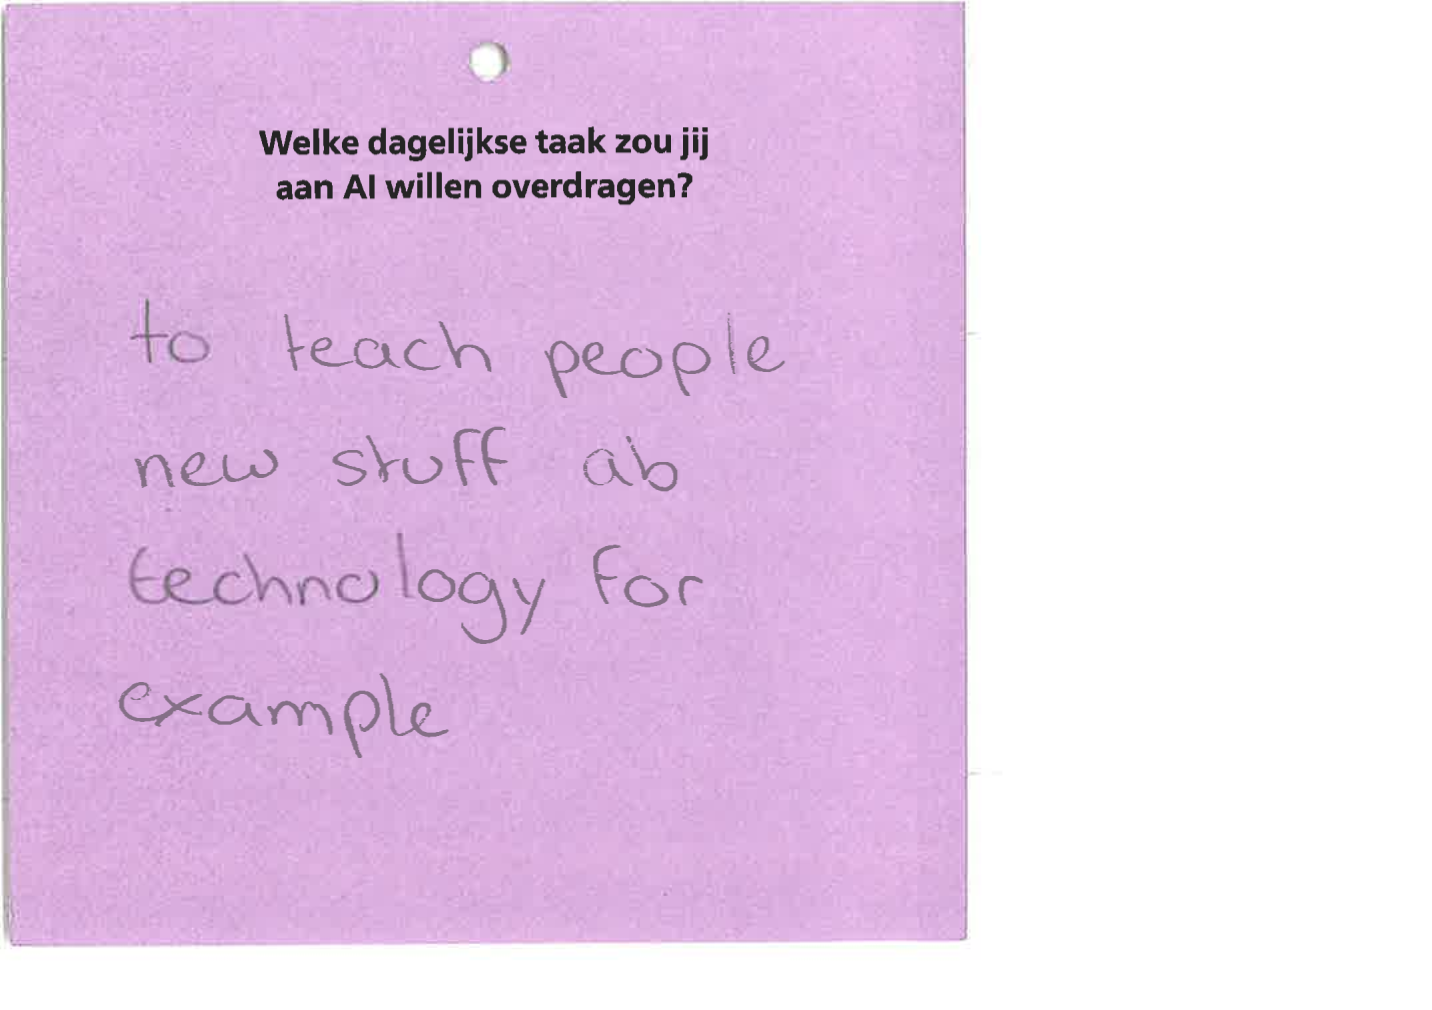 Welke dagelijkse taak zou jij
aan AI willen overdragen?
to teach people
new stuff ab
technology for
example